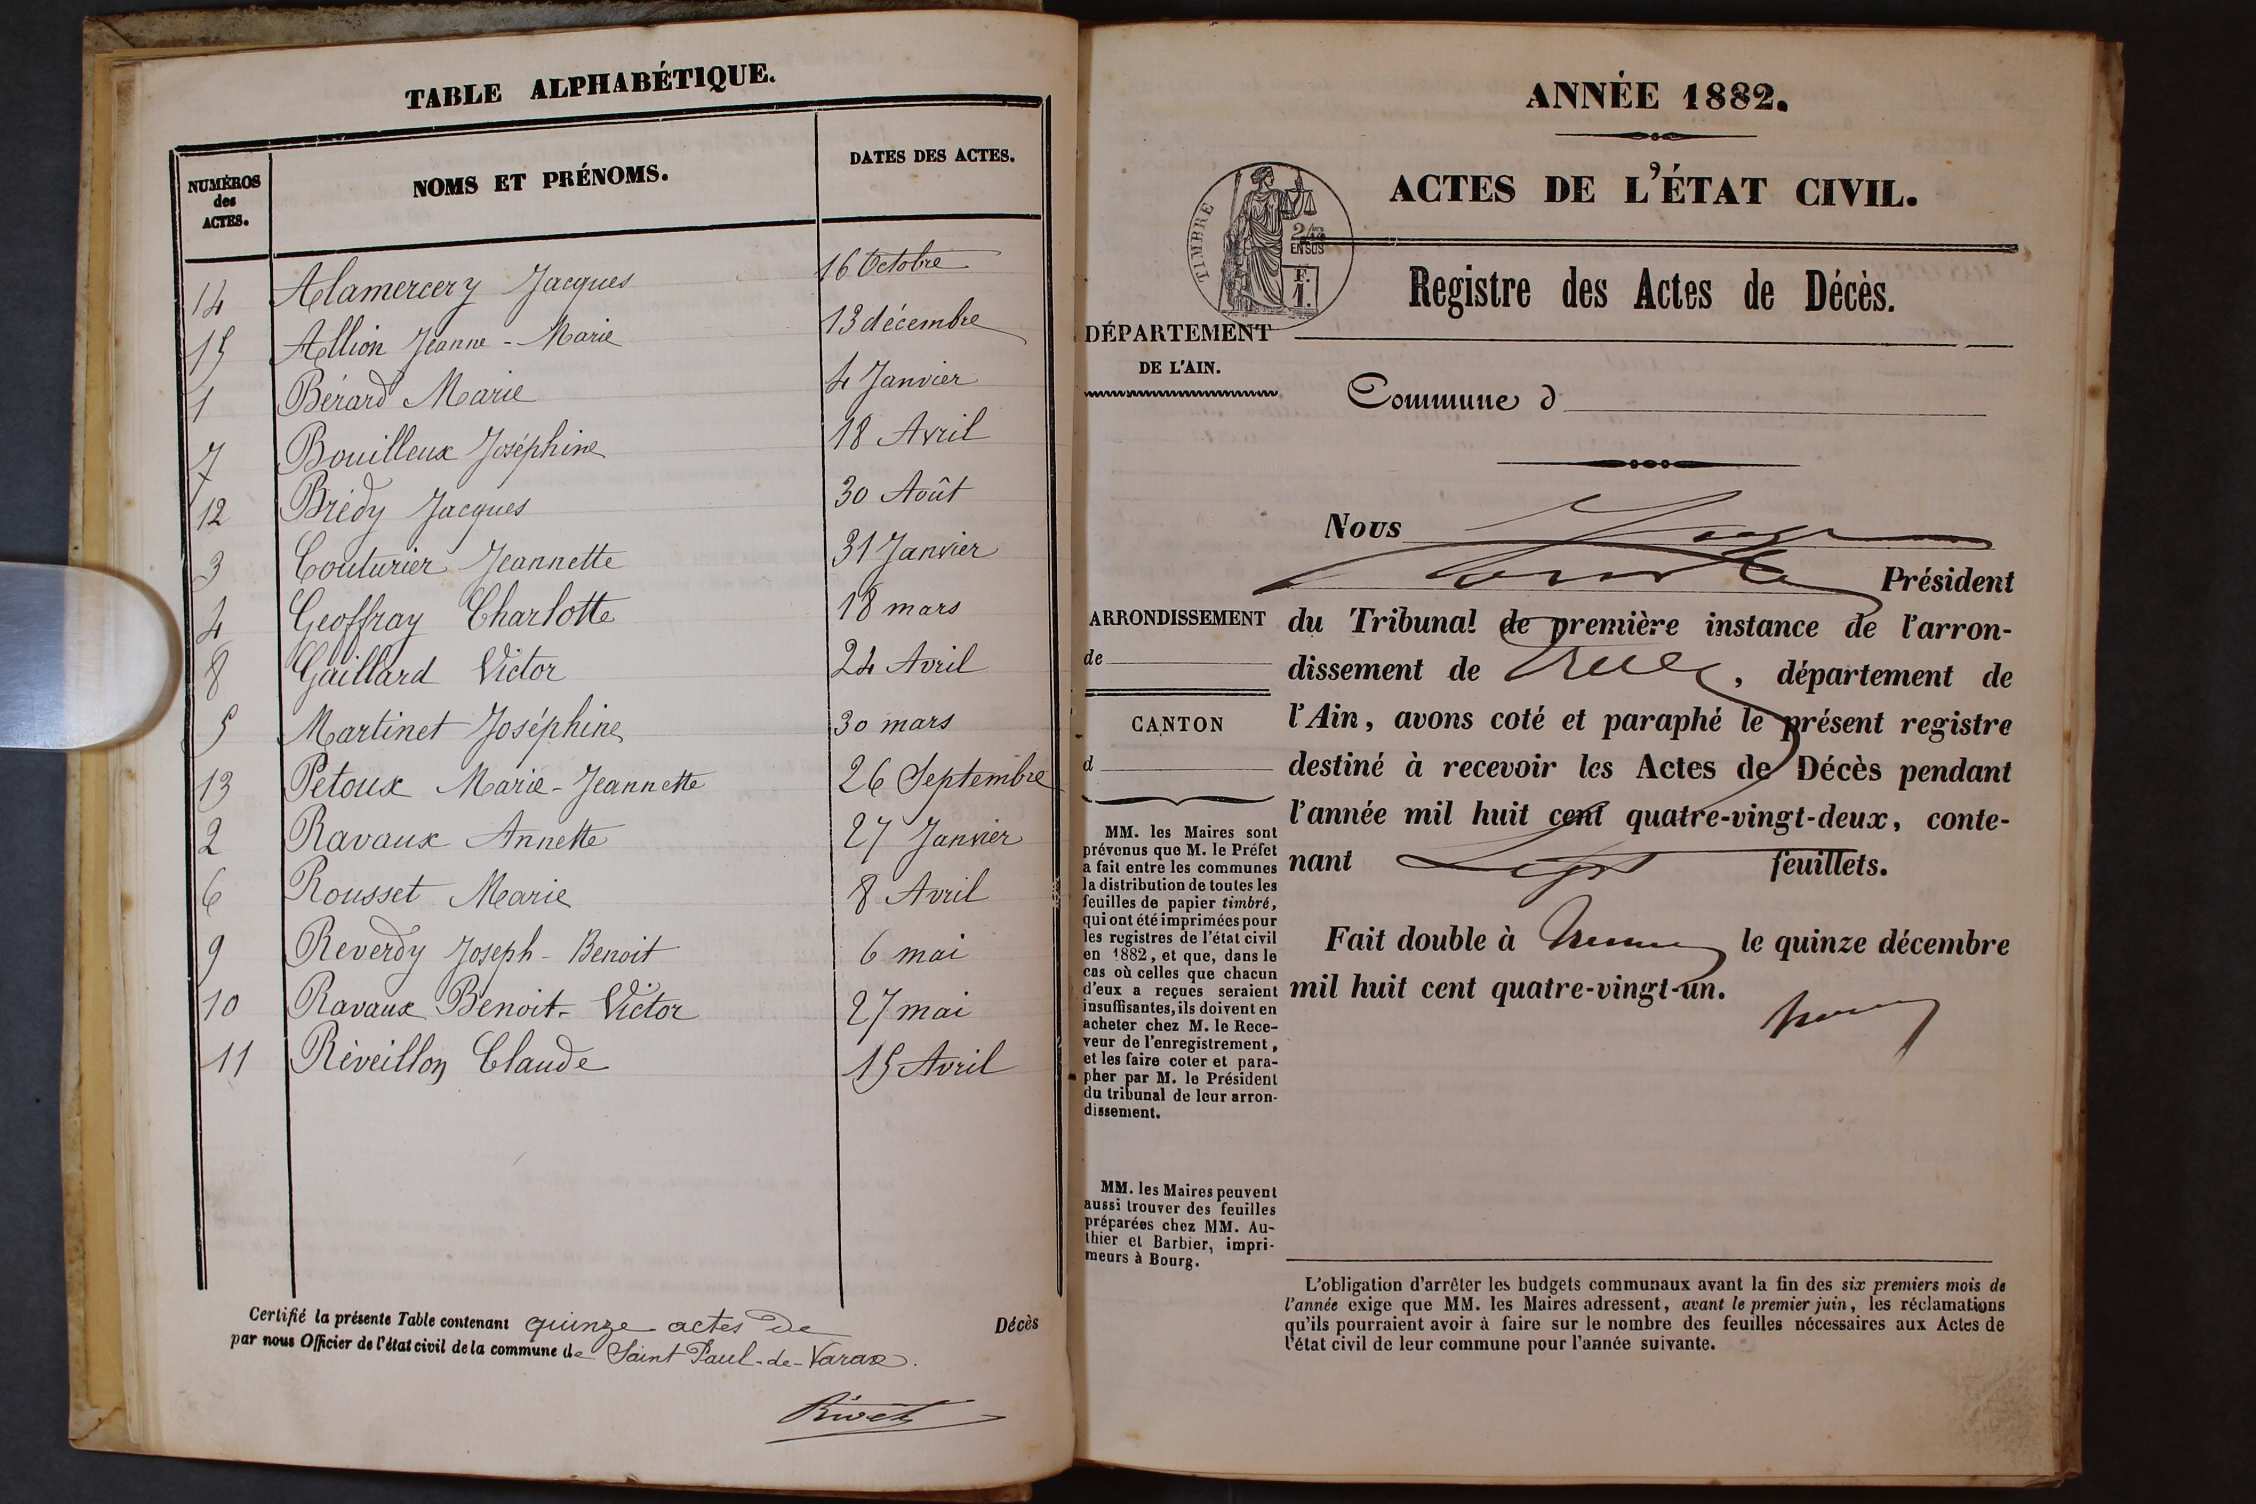 TABLE ALPHABÉTIQUE.
NUMÉROS des ACTES. NOMS ET PRÉNOMS. DATES DES ACTES.
14 Alamercery Jacques 16 Octobre
15 Allion Jeanne-Marie 13 décembre
1 Bérard Marie 4 Janvier
7 Bouilleux Joséphine 18 Avril
12 Brédy Jacques 30 Août
3 Couturier Jeannette 31 Janvier
4 Geoffray Charlotte 18 mars
8 Gaillard Victor 24 Avril
5 Martinet Joséphine 30 mars
13 Petoux Marie-Jeannette 26 Septembre
2 Ravaux Annette 27 Janvier
6 Rousset Marie 8 Avril
9 Reverdy Joseph-Benoit 6 mai
10 Ravaux Benoit-Victor 27 mai
11 Réveillon Claude 15 Avril
Certifié la présente Table contenant quinze actes de Décès
par nous Officier de l'état civil de la commune de Saint Paul-de-Varax.
Rivet
ANNÉE 1882.
ACTES DE L'ÉTAT CIVIL.
TIMBRE
2/10
EN SUS
F.
1.
Registre des Actes de Décès.
DÉPARTEMENT
DE L'AIN.
Commune d
ARRONDISSEMENT
de
CANTON
d
MM. les Maires sont
prévenus que M. le Préfet
a fait entre les communes
la distribution de toutes les
feuilles de papier timbré,
qui ont été imprimées pour
les registres de l'état civil
en 1882, et que, dans le
cas où celles que chacun
d'eux a reçues seraient
insuffisantes, ils doivent en
acheter chez M. le Rece-
veur de l'enregistrement,
et les faire coter et para-
pher par M. le Président
du tribunal de leur arron-
dissement.
MM. les Maires peuvent
aussi trouver des feuilles
préparées chez MM. Au-
thier et Barbier, impri-
meurs à Bourg.
Nous
Président
du Tribunal de première instance de l'arron-
dissement de , département de
l'Ain, avons coté et paraphé le présent registre
destiné à recevoir les Actes de Décès pendant
l'année mil huit cent quatre-vingt-deux, conte-
nant Sept feuillets.
Fait double à le quinze décembre
mil huit cent quatre-vingt-un.
L'obligation d'arrêter les budgets communaux avant la fin des six premiers mois de
l'année exige que MM. les Maires adressent, avant le premier juin, les réclamations
qu'ils pourraient avoir à faire sur le nombre des feuilles nécessaires aux Actes de
l'état civil de leur commune pour l'année suivante.